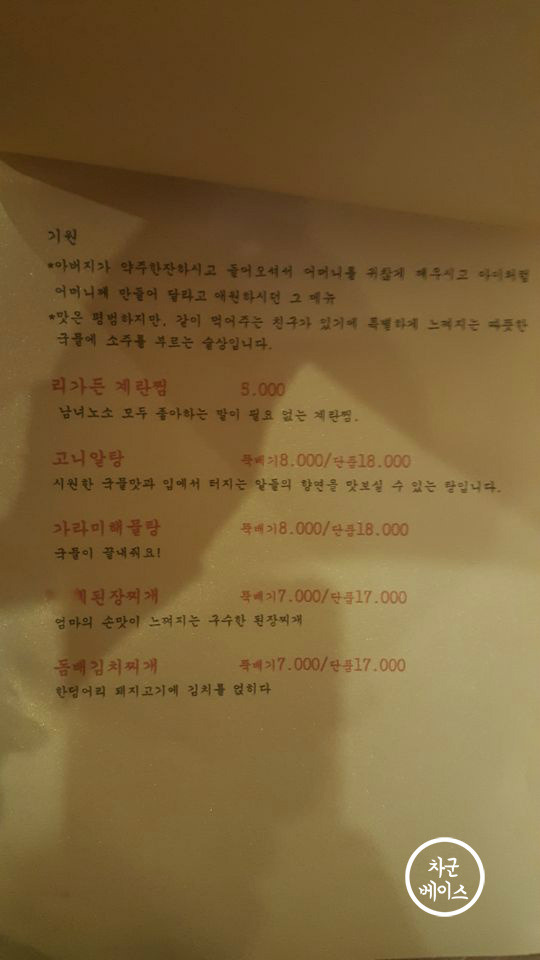 기원
*아버지가 약주한잔하시고 들어오셔서 어머니를 귀찮게 깨우시고 아이처럼
어머니께 만들어 달라고 애원하시던 그 메뉴
*맛은 평범하지만, 같이 먹어주는 친구가 있기에 특별하게 느껴지는 따뜻한
국물에 소주를 부르는 술상입니다.
리가든 계란찜 5.000
남녀노소 모두 좋아하는 말이 필요 없는 계란찜.
고니알탕 뚝배기8.000/단품18.000
시원한 국물맛과 입에서 터지는 알들의 향연을 맛보실 수 있는 탕입니다.
가라미해물탕 뚝배기8.000/단품18.000
국물이 끝내줘요!
된장찌개 뚝배기7.000/단품17.000
엄마의 손맛이 느껴지는 구수한 된장찌개
돔배김치찌개 뚝배기7.000/단품17.000
한덩어리 돼지고기에 김치를 얹히다
차군
베이스